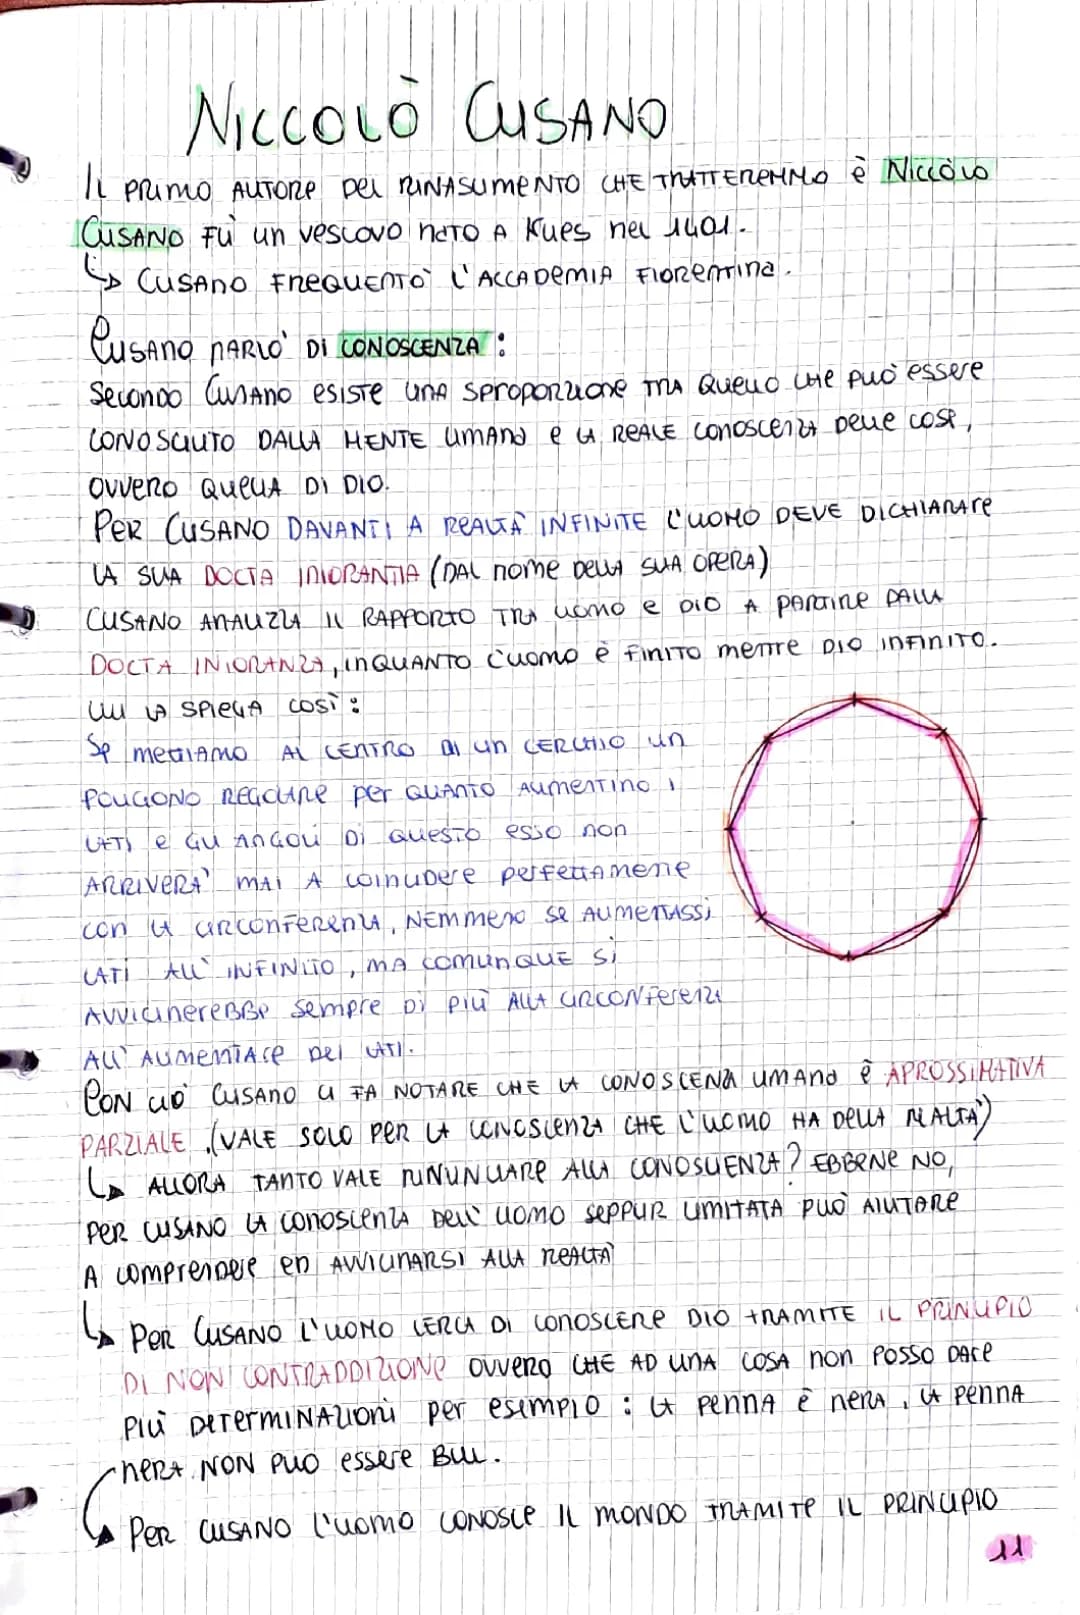 NICCOLÒ CUSANO
IL PRIMO AUTORE DEL RINASCIMENTO CHE TRATTEREMMO È NICCOLO
CUSANO FÙ UN VESCOVO NATO A KUES NEL 1401.
↳ CUSANO FREQUENTO' L'ACCADEMIA FIORENTINA.
CUSANO PARLO' DI CONOSCENZA :
SECONDO CUSANO ESISTE UNA SPROPORZIONE TRA QUELLO CHE PUO' ESSERE
CONOSCIUTO DALLA MENTE UMANA E LA REALE CONOSCENZA DELLE COSE,
OVVERO QUELLA DI DIO.
PER CUSANO DAVANTI A REALTA' INFINITE L'UOMO DEVE DICHIARARE
LA SUA DOCTA INIORANTIA (DAL NOME DELLA SUA OPERA)
CUSANO ANALIZZA IL RAPPORTO TRA UOMO E DIO A PARTIRE DALLA
DOCTA INIORANZA, INQUANTO L'UOMO È FINITO MENTRE DIO INFINITO.
LUI LA SPIEGA COSÌ :
SE METTIAMO AL CENTRO DI UN CERCHIO UN
POLIGONO REGOLARE PER QUANTO AUMENTINO I
LATI E GLI ANGOLI DI QUESTO ESSO NON
ARRIVERA' MAI A COINCIDERE PERFETTAMENE
CON LA CIRCONFERENZA, NEMMENO SE AUMENTASSI
LATI ALL'INFINITO, MA COMUNQUE SI
AVVICINEREBBE SEMPRE DI PIÙ ALLA CIRCONFERENZA
ALL'AUMENTARE DEI LATI.
CON CIÒ CUSANO CI FA NOTARE CHE LA CONOSCENZA UMANA È APROSSIMATIVA
PARZIALE.(VALE SOLO PER LA CONOSCENZA CHE L'UOMO HA DELLA REALTÀ)
↳ ALLORA TANTO VALE RINUNCIARE ALLA CONOSCENZA? EBBENE NO,
PER CUSANO LA CONOSCENZA DELL'UOMO SEPPUR LIMITATA PUÒ AIUTARE
A COMPRENDERE ED AVVICINARSI ALLA REALTA'
↳ PER CUSANO L'UOMO CERCA DI CONOSCERE DIO TRAMITE IL PRINCIPIO
DI NON CONTRADDIZIONE OVVERO CHE AD UNA COSA NON POSSO DARE
PIÙ DETERMINAZIONI PER ESEMPIO : LA PENNA È NERA, LA PENNA
NERA NON PUO ESSERE BLU.
↳ PER CUSANO L'UOMO CONOSCE IL MONDO TRAMITE IL PRINCIPIO
11